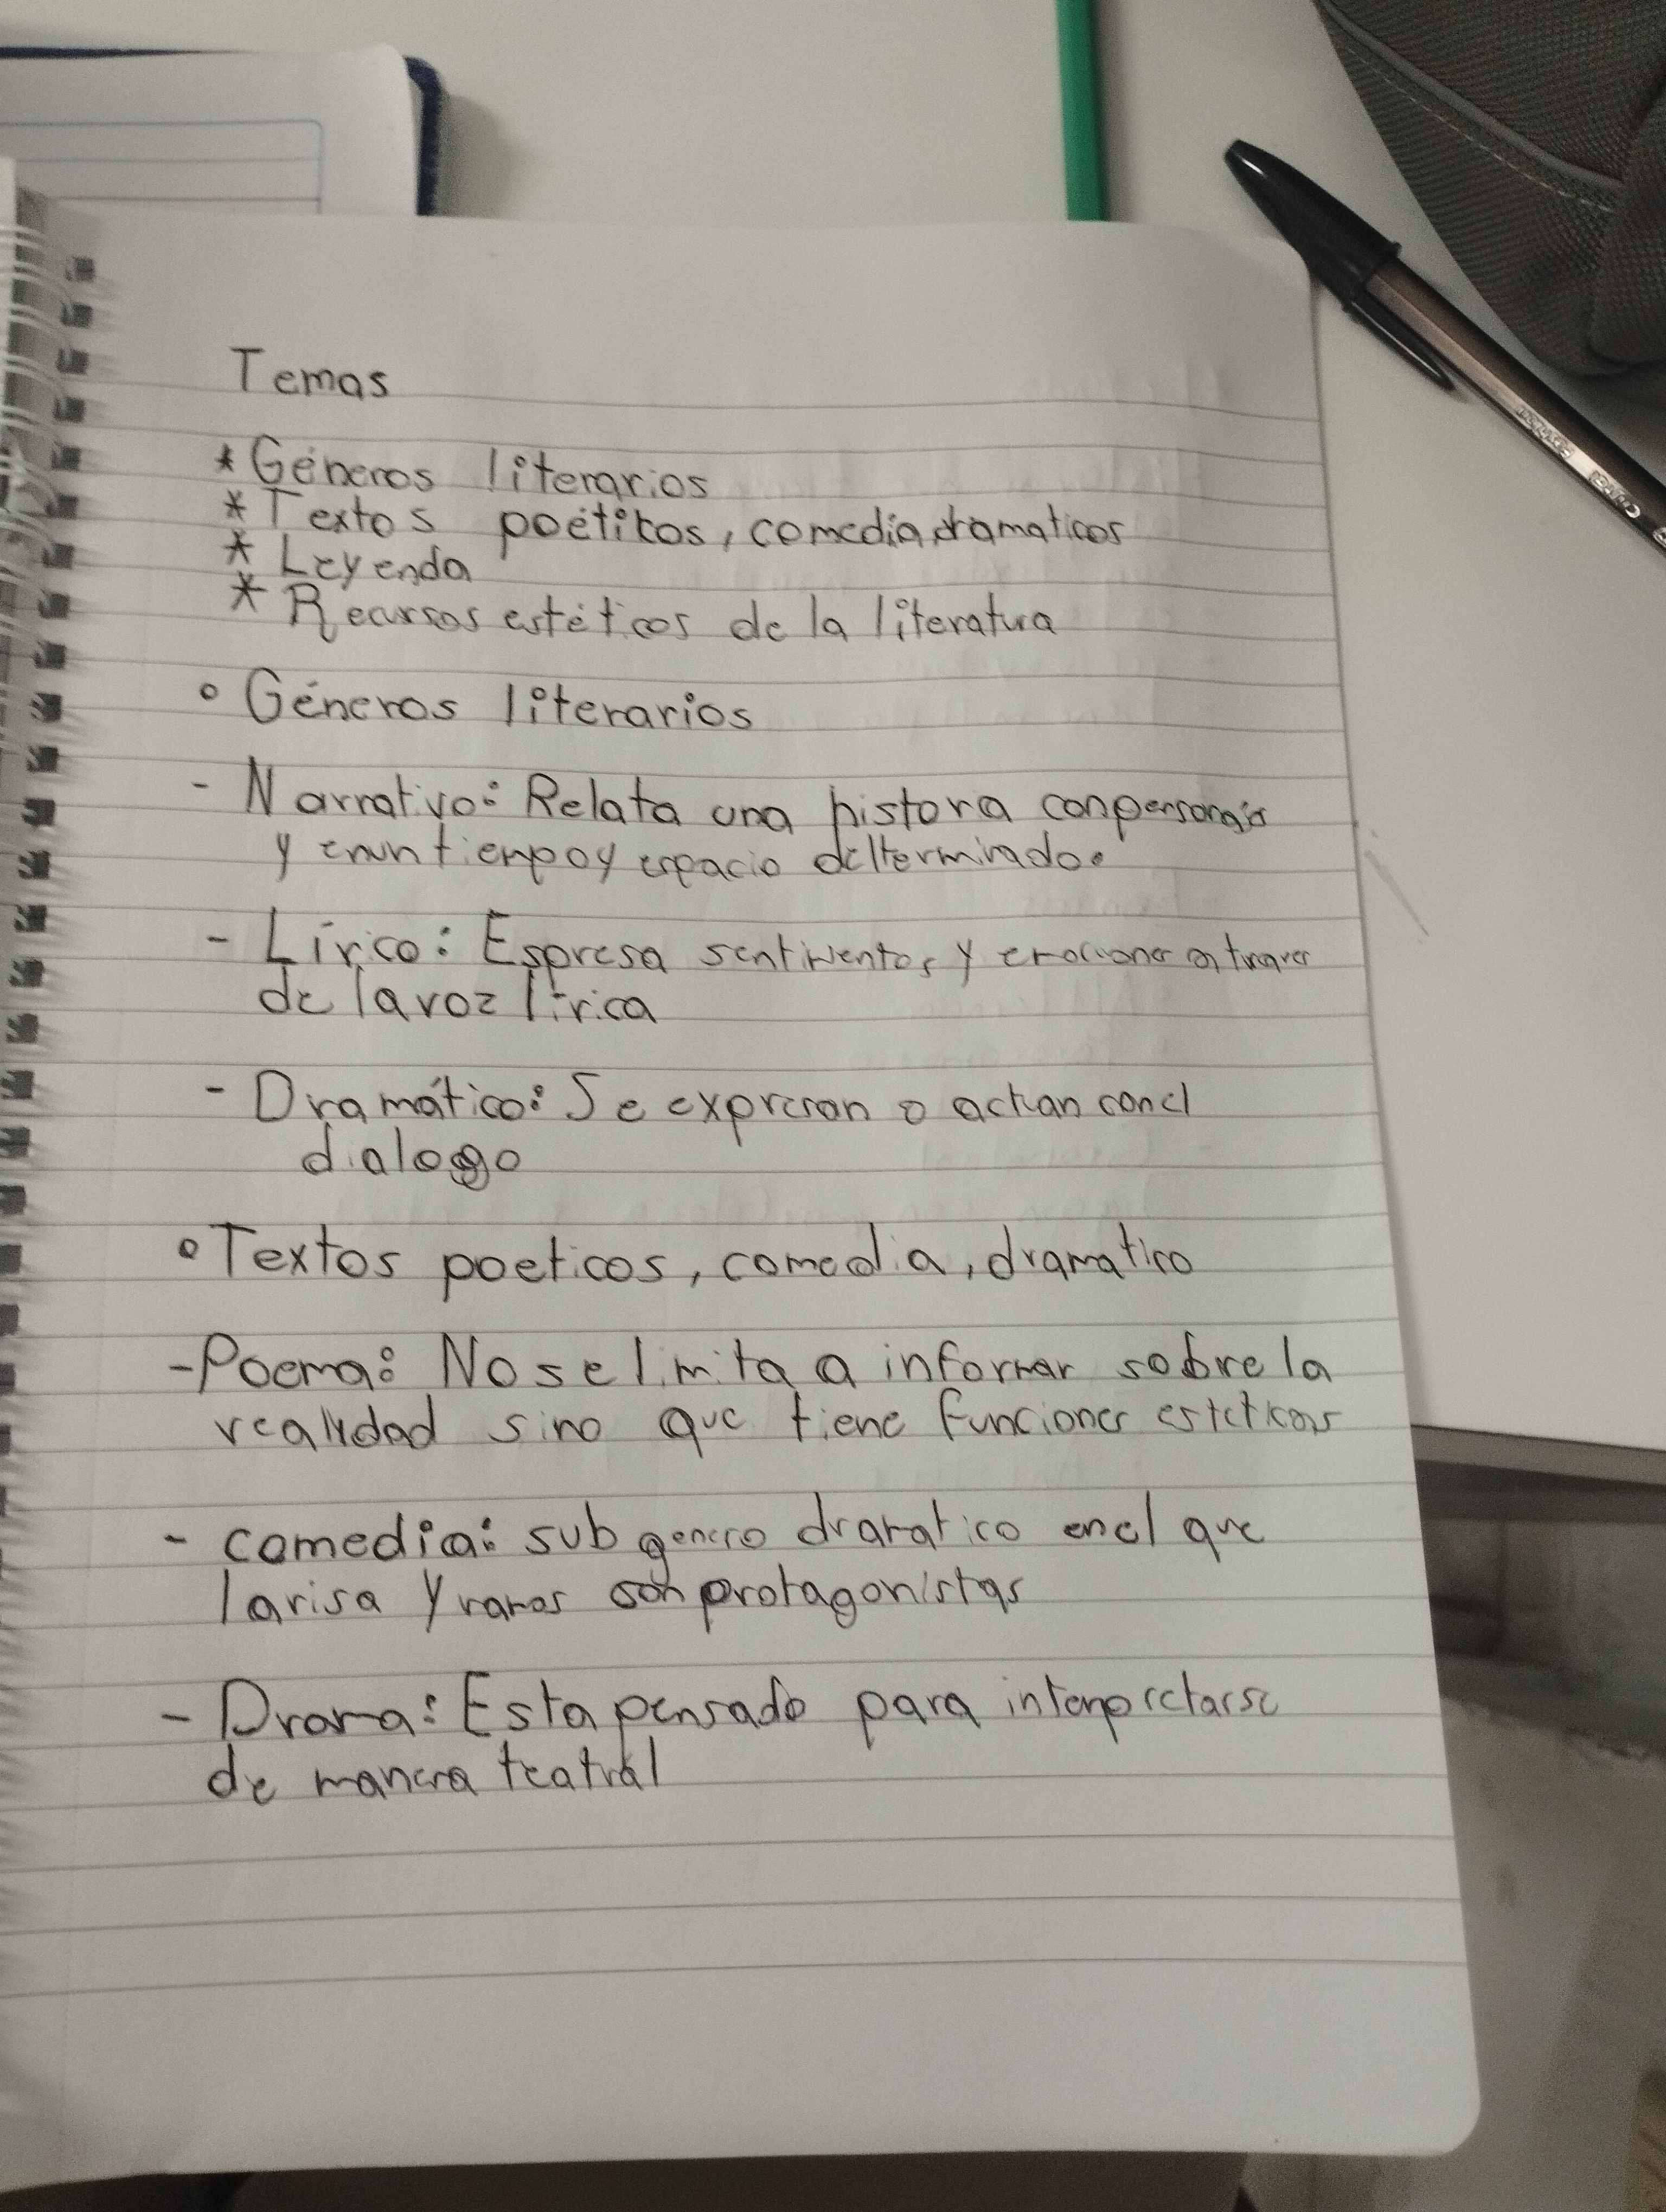 Temas
* Géneros literarios
* Textos poétikos, comedia, dramaticos
* Leyenda
* Recursos estéticos de la literatura
° Géneros literarios
- Narrativo: Relata una histora con personajes
y en un tiempo y espacio deltermirado.
- Lírico: Espresa sentimentos y emociones a traves
de la voz lírica
- Dramático: Se expresan o actuan con el
dialogo
° Textos poeticos, comedia, dramatico
- Poema: No se limita a informar sobre la
realidad sino que tiene funciones esteticas
- comedia: sub genero dramatico en el que
la risa y son protagonistas
- Drama: Esta pensado para interpretarse
de manera teatral